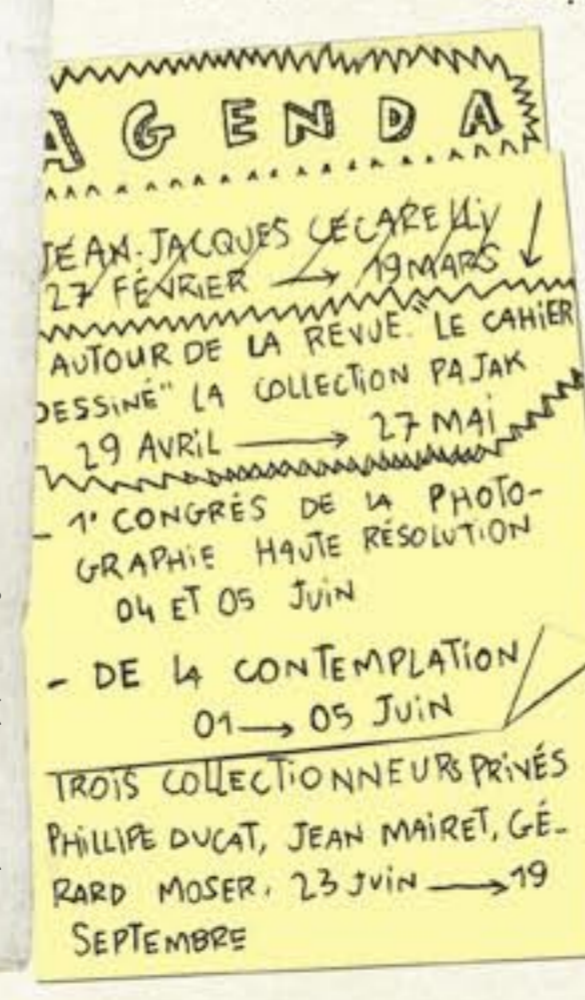 AGENDA
JEAN-JACQUES CECARELLI
27 FÉVRIER → 19 MARS ↓
AUTOUR DE LA REVUE "LE CAHIER
DESSINÉ" LA COLLECTION PAJAK
29 AVRIL → 27 MAI
- 1° CONGRÉS DE LA PHOTO-
GRAPHIE HAUTE RÉSOLUTION
04 ET 05 JUIN
- DE LA CONTEMPLATION
01 → 05 JUIN
TROIS COLLECTIONNEURS PRIVÉS
PHILLIPE DUCAT, JEAN MAIRET, GÉ-
RARD MOSER. 23 JUIN → 19
SEPTEMBRE